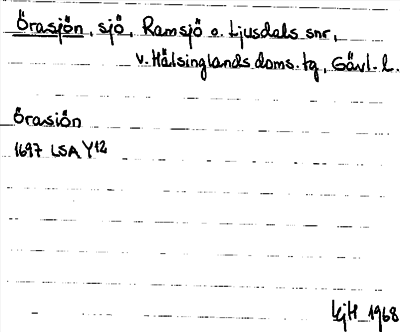 Örasjön, sjö, Ramsjö o. Ljusdals snr,
v. Hälsinglands doms. tg, Gävl. l.
Örasiön
1697 LSA Y12
KjH 1968